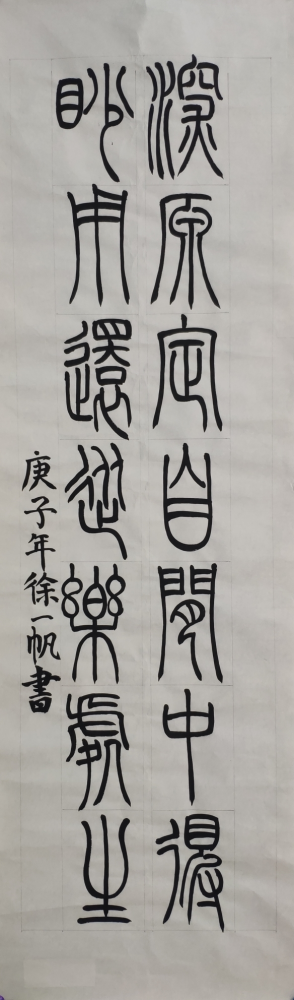 深原定自閒中得
眇用還從樂處生
庚子年徐一帆書